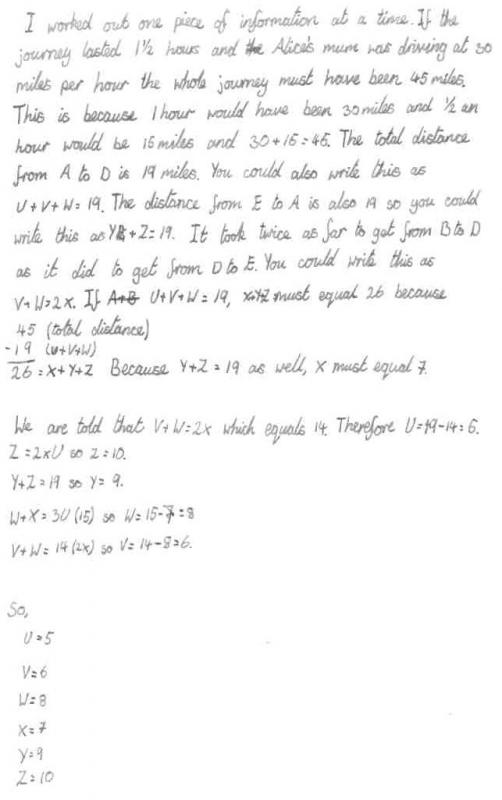 I worked out one piece of information at a time. If the
journey lasted 1½ hours and the Alice's mum was driving at 30
miles per hour the whole journey must have been 45 miles.
This is because 1 hour would have been 30 miles and ½ an
hour would be 15 miles and 30+15=45. The total distance
from A to D is 19 miles. You could also write this as
U+V+W=19. The distance from E to A is also 19 so you could
write this as Y+Z=19. It took twice as far to get from B to D
as it did to get from D to E. You could write this as
V+W=2x. If A+B U+V+W=19, X+Y+Z must equal 26 because
45 (total distance)
-19 (U+V+W)
26=X+Y+Z Because Y+Z=19 as well, X must equal 7.
We are told that V+W=2x which equals 14. Therefore U=19-14=5.
Z=2xU so Z=10.
Y+Z=19 so Y=9.
W+X=3U(15) so W=15-7=8
V+W=14(2x) so V=14-8=6.
So,
U=5
V=6
W=8
X=7
Y=9
Z=10